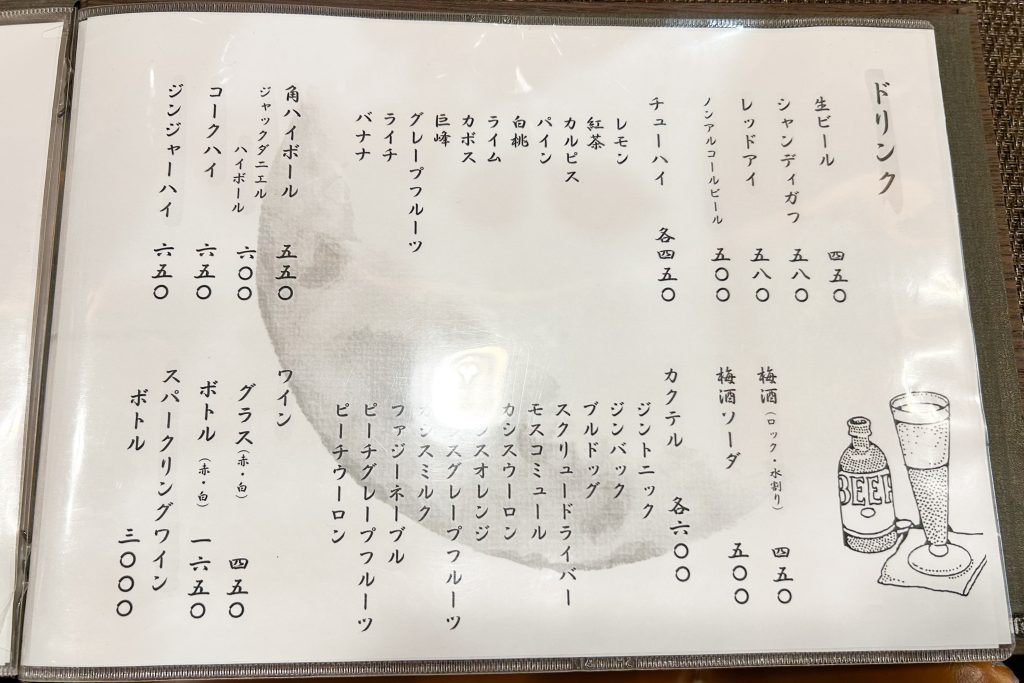 ドリンク
生ビール 四五〇
シャンディガフ 五八〇
レッドアイ 五八〇
ノンアルコールビール 五〇〇
チューハイ 各四五〇
レモン
紅茶
カルピス
パイン
白桃
ライム
カボス
巨峰
グレープフルーツ
ライチ
バナナ
角ハイボール 五五〇
ジャックダニエル
ハイボール 六〇〇
コークハイ 六五〇
ジンジャーハイ 六五〇
梅酒(ロック・水割り) 四五〇
梅酒ソーダ 五〇〇
カクテル 各六〇〇
ジントニック
ジンバック
ブルドッグ
スクリュードライバー
モスコミュール
カシスウーロン
スオレンジ
スグレープフルーツ
シスミルク
ファジーネーブル
ピーチグレープフルーツ
ピーチウーロン
ワイン
グラス(赤・白) 四五〇
ボトル(赤・白) 一六五〇
スパークリングワイン
ボトル 三〇〇〇
BEER